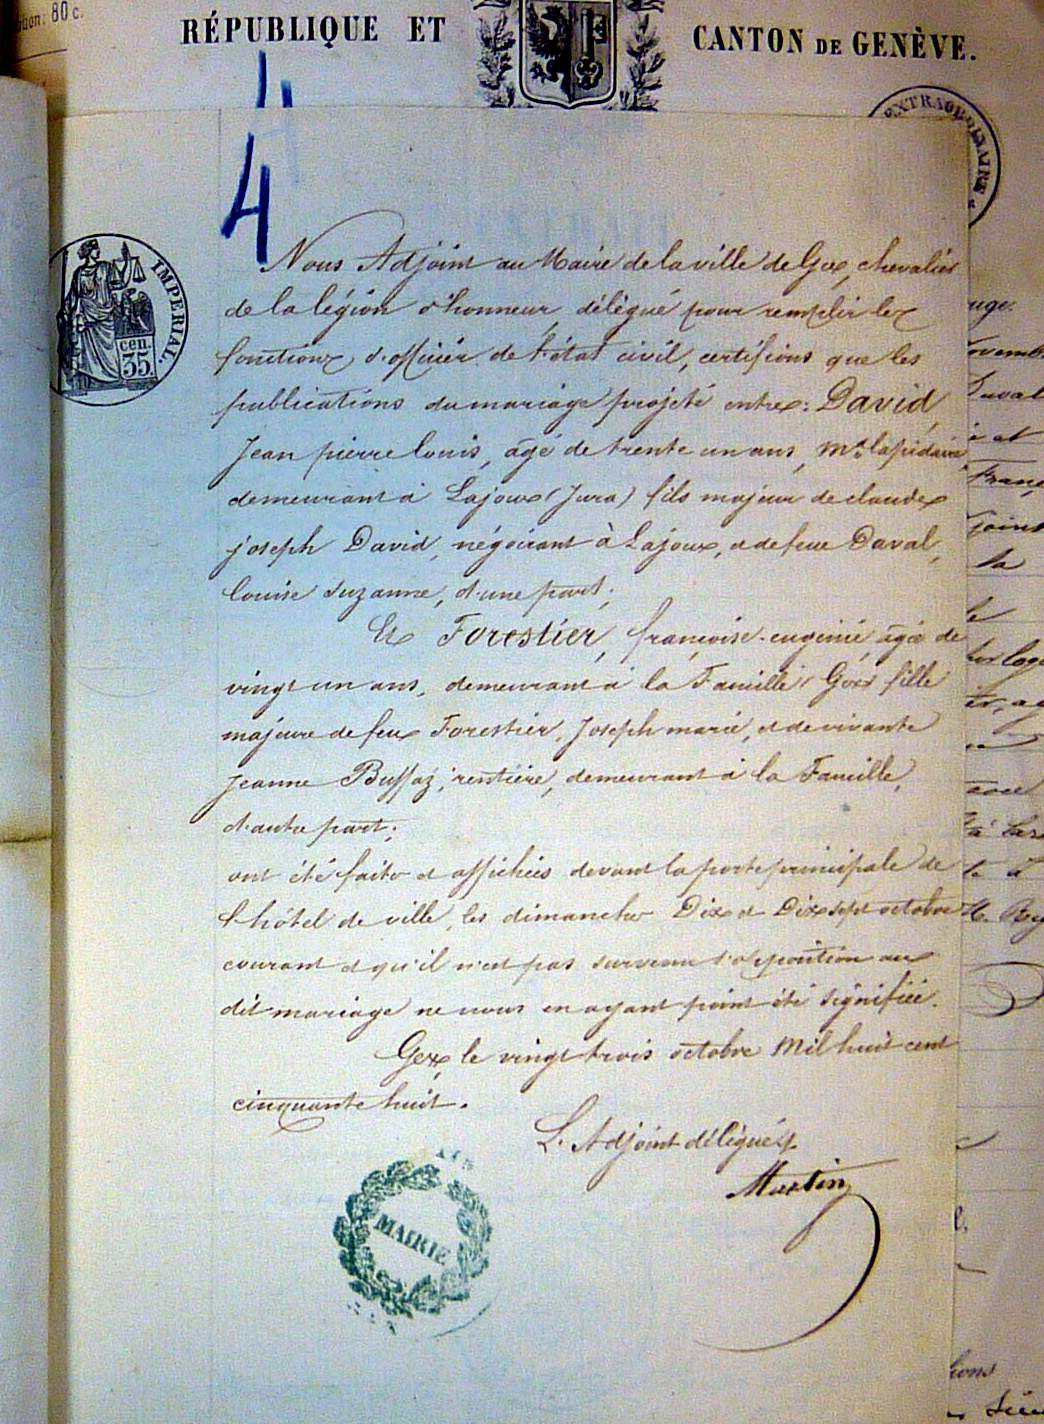 80 c.
RÉPUBLIQUE ET CANTON DE GENÈVE.
EXTRAORDINAIRE
4
4
IMPERIAL.
cen.
35.
Nous Adjoint au Maire de la ville de Gex, chevalier
de la légion d'honneur, délégué pour remplir les
fonctions d'officier de l'état civil, certifions que les
publications du mariage projeté entre: David,
Jean pierre Louis, âgé de trente un ans, Md. lapidaire
demeurant à Lajoux (Jura) fils majeur de claude
joseph David, négociant à Lajoux, et de feue Daval,
Louise Suzanne, d'une part;
Et Forestier, françoise-eugénie, âgée de
vingt un ans, demeurant à la Faucille, Gex, fille
majeure de feu Forestier, Joseph marie, et de vivante
Jeanne Bussaz, rentière, demeurant à la Faucille,
d'autre part;
ont été faites et affichées devant la porte principale de
l'hôtel de ville, les dimanches Dix et Dix sept octobre
courant et qu'il n'est pas survenu d'opposition au
dit mariage ne nous en ayant point été signifiée.
Gex le vingt trois octobre Mil huit cent
cinquante huit.
L'Adjoint délégué
Martin
MAIRIE